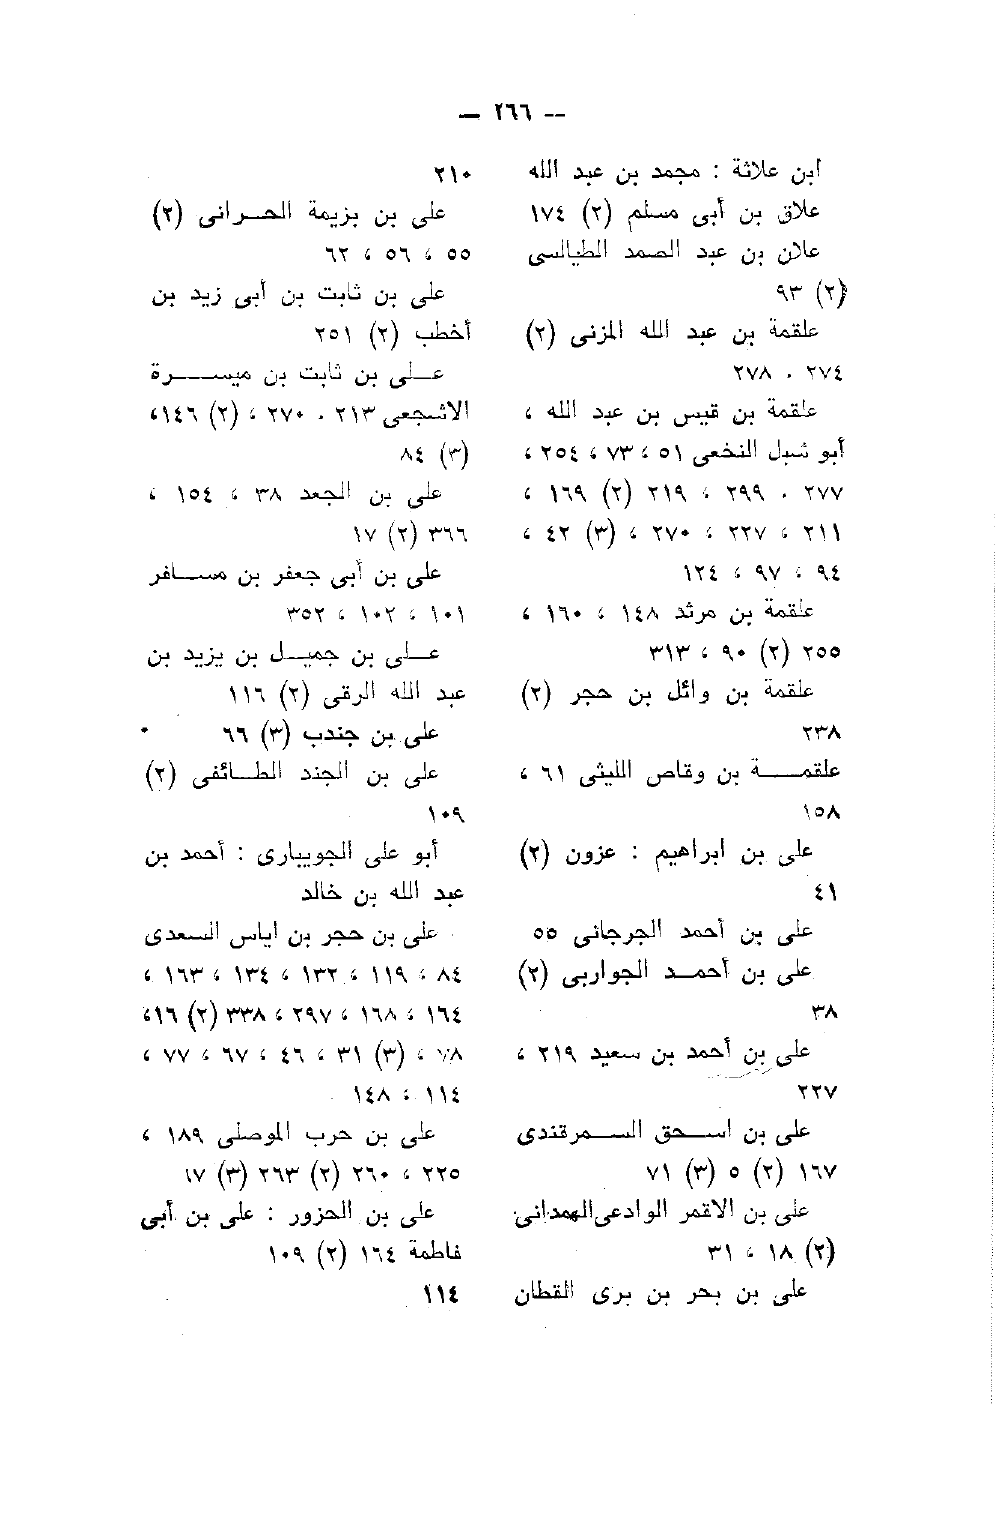 — ٢٦٦ —
ابن علاثة : محمد بن عبد الله
علاق بن أبى مسلم (٢) ١٧٤
علان بن عبد الصمد الطيالسى
(٢) ٩٣
علقمة بن عبد الله المزنى (٢)
٢٧٤ ، ٢٧٨
علقمة بن قيس بن عبد الله ،
أبو شبل النخعى ٥١ ، ٧٣ ، ٢٥٤ ،
٢٧٧ ، ٢٩٩ ، ٢١٩ (٢) ١٦٩ ،
٢١١ ، ٢٢٧ ، ٢٧٠ ، (٣) ٤٢ ،
٩٤ ، ٩٧ ، ١٢٤
علقمة بن مرثد ١٤٨ ، ١٦٠ ،
٢٥٥ (٢) ٩٠ ، ٣١٣
علقمة بن وائل بن حجر (٢)
٢٣٨
علقمـــة بن وقاص الليثى ٦١ ،
١٥٨
على بن ابراهيم : عزون (٢)
٤١
على بن أحمد الجرجانى ٥٥
على بن أحمـد الجواربى (٢)
٣٨
على بن أحمد بن سعيد ٢١٩ ،
٢٢٧
على بن اســحق الســمرقندى
١٦٧ (٢) ٥ (٣) ٧١
على بن الاقمر الوادعى الهمدانى
(٢) ١٨ ، ٣١
على بن بحر بن برى القطان
٢١٠
على بن بزيمة الحــرانى (٢)
٥٥ ، ٥٦ ، ٦٢
على بن ثابت بن أبى زيد بن
أخطب (٢) ٢٥١
عــلى بن ثابت بن ميســـرة
الاشجعى ٢١٣ ، ٢٧٠ ، (٢) ١٤٦،
(٣) ٨٤
على بن الجعد ٣٨ ، ١٥٤ ،
٣٦٦ (٢) ١٧
على بن أبى جعفر بن مســافر
١٠١ ، ١٠٢ ، ٣٥٢
عــلى بن جميــل بن يزيد بن
عبد الله الرقى (٢) ١١٦
على بن جندب (٣) ٦٦
على بن الجند الطــائفى (٢)
١٠٩
أبو على الجويبارى : أحمد بن
عبد الله بن خالد
على بن حجر بن اياس السعدى
٨٤ ، ١١٩ ، ١٣٢ ، ١٣٤ ، ١٦٣ ،
١٦٤ ، ١٦٨ ، ٢٩٧ ، ٣٣٨ (٢) ١٦،
٧٨ ، (٣) ٣١ ، ٤٦ ، ٦٧ ، ٧٧ ،
١١٤ ، ١٤٨
على بن حرب الموصلى ١٨٩ ،
٢٢٥ ، ٢٦٠ (٢) ٢٦٣ (٣) ١٧
على بن الحزور : على بن أبى
فاطمة ١٦٤ (٢) ١٠٩
١١٤